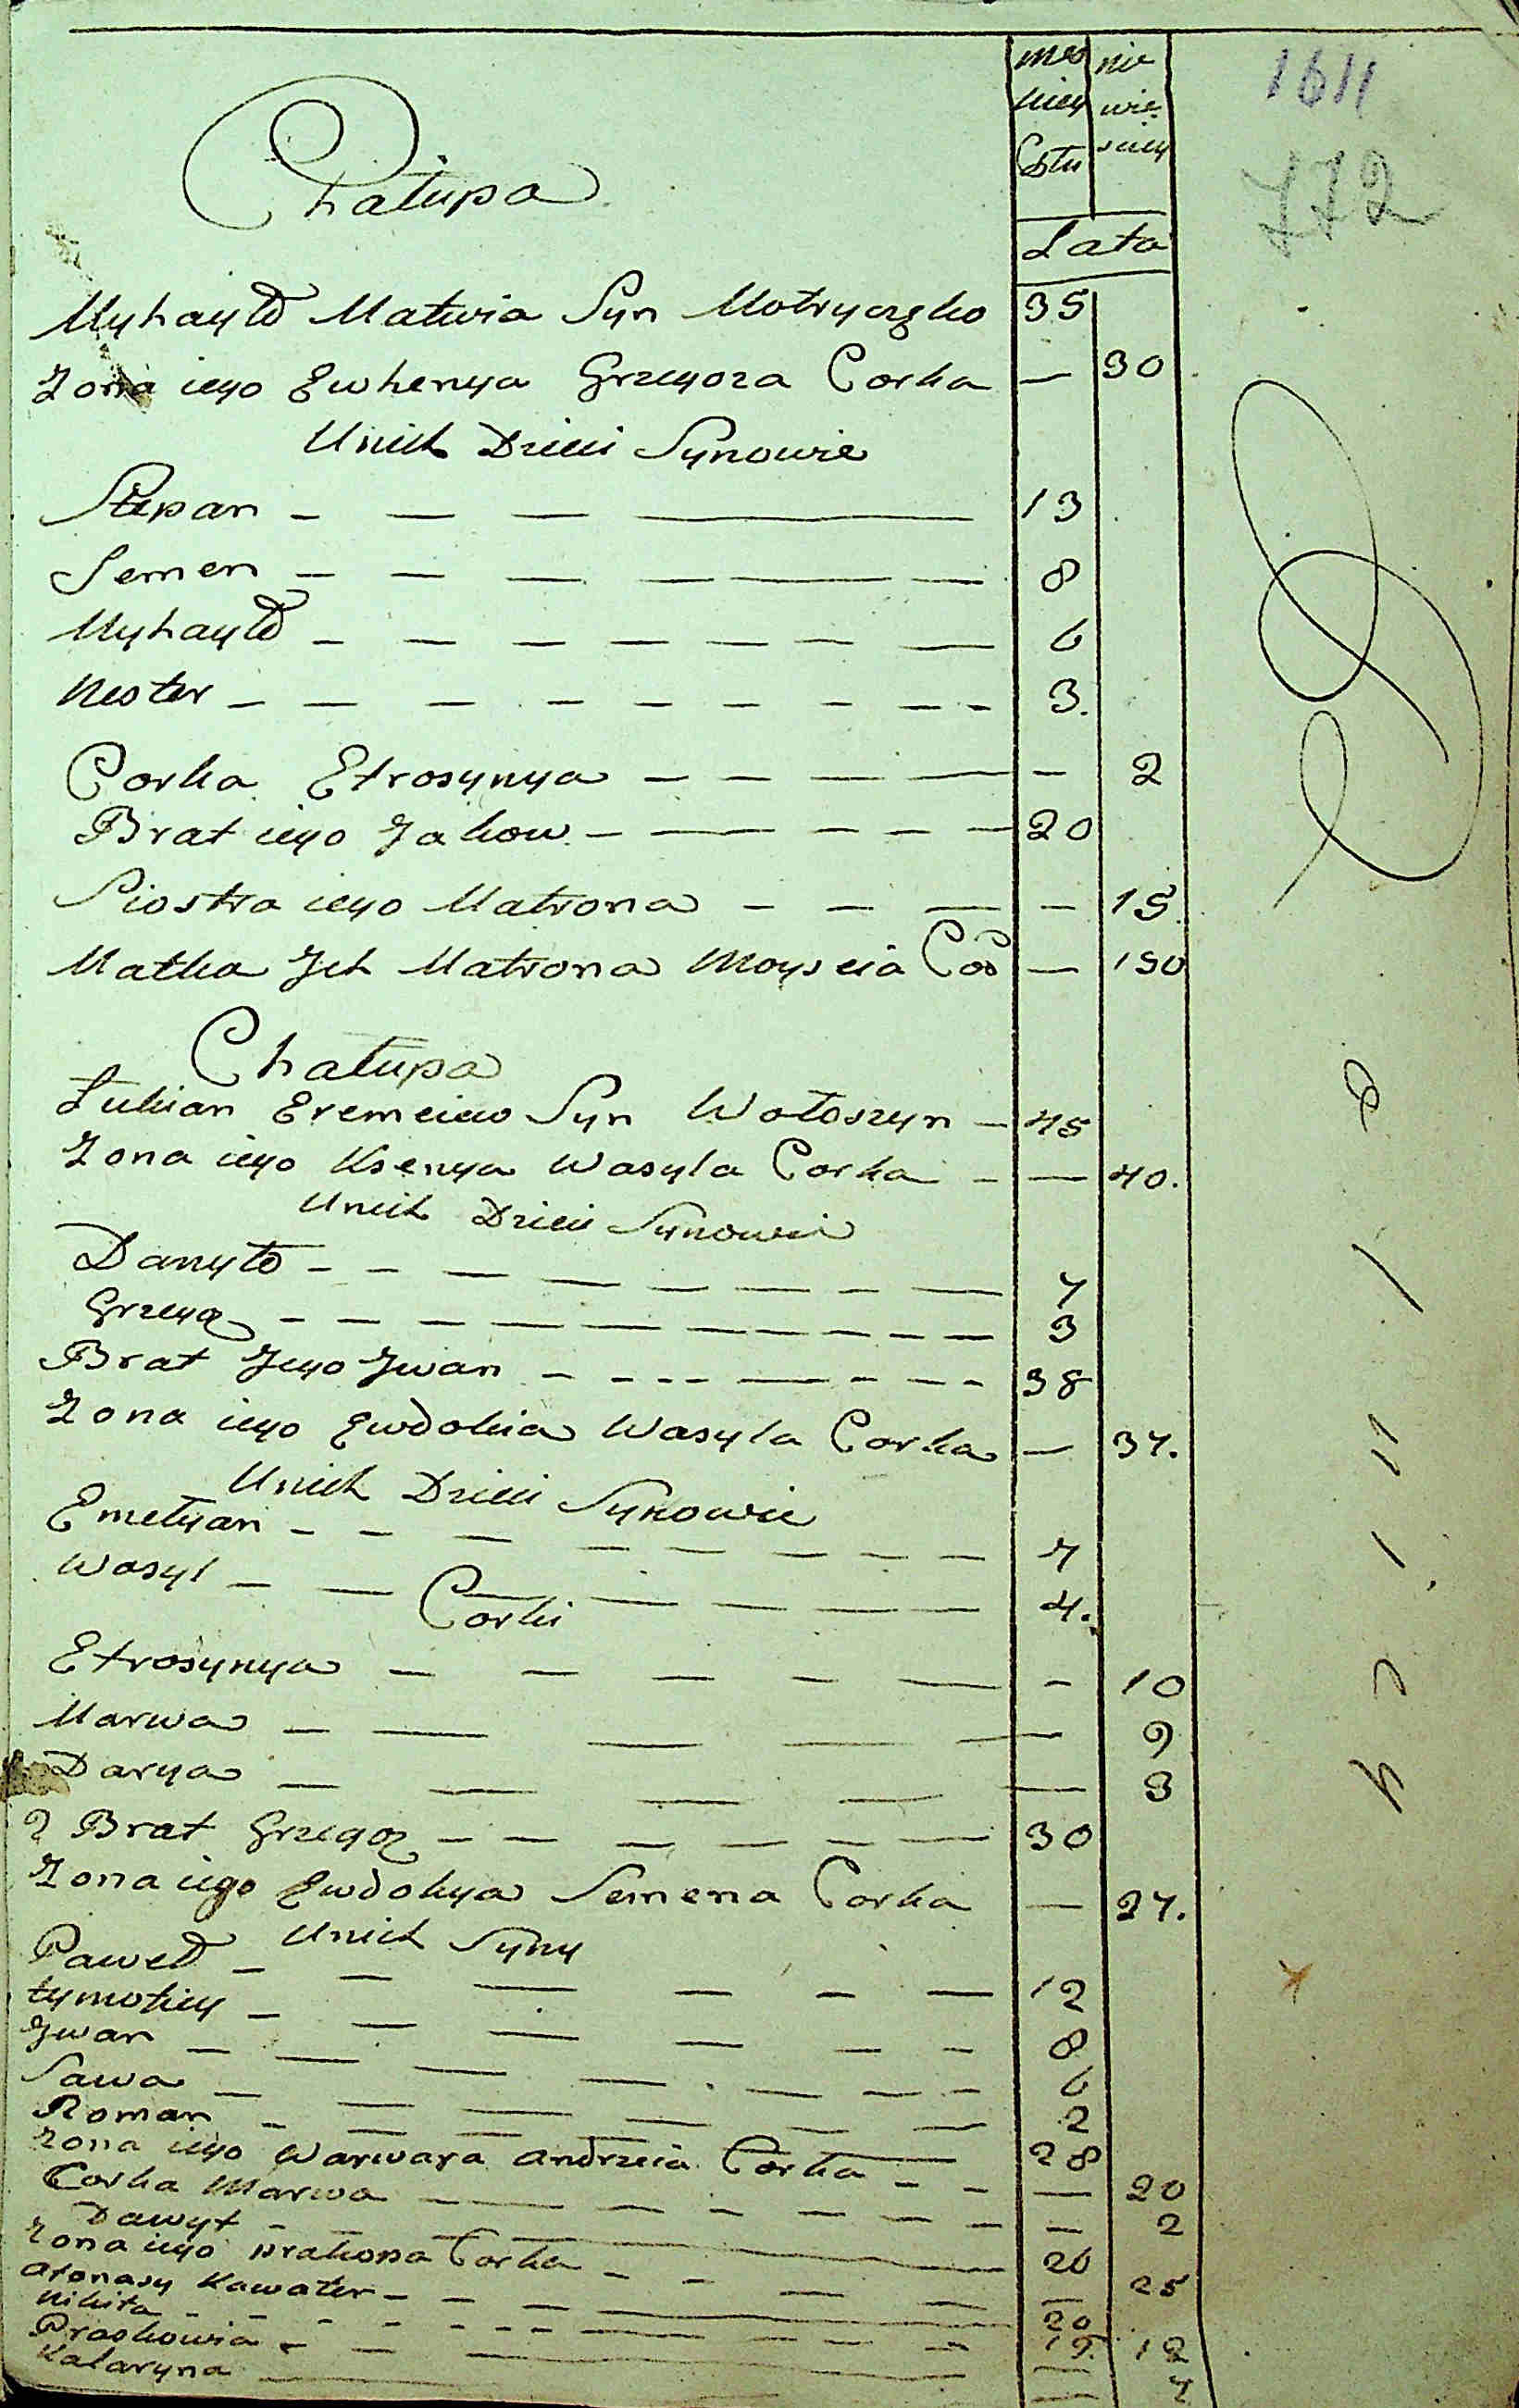 męs nie
kiey wie-
Stu sciey
1611
772
Chałupa
Lata
Myhayło Matwia Syn Motryczko 35
Zona iego Ewhenya Grzegorza Corka — 30
Unich Dzieci Synowie
Stepan — — — — 13
Semen — — — — — 8
Myhayło — — — — — — — 6
Nester — — — — — — — — 3.
Corka Efrosynya — — — — — 2
Brat iego Jakow — — — — — 20
Siostra iego Matrona — — — — 15.
Matka Jch Matrona Moyseia Co — 150
Chałupa
Łukian Eremeiew Syn Wołoszyn — 45
Zona iego Ksenya Wasyla Corka — — 40.
Unich Dzieci Synowie
Danyło — — — — — — — 7
Grzegoz — — — — — — — — — 3
Brat Jego Jwan — — — — — — — 38
Zona iego Ewdokia Wasyla Corka — 37.
Unich Dzieci Synowie
Emelyan — — — — — — — — 7
Wasyl — — — — — — — 4.
Corki
Efrosynya — — — — — — 10
Marwa — — — — — 9
Darya — — — — — 3
2 Brat Grzegoz — — — — — — 30
Zona iego Ewdokya Semena Corka — 27.
Unich Syny
Paweł — — — — — — 12
tymofiey — — — — — — 8
Jwan — — — — — — — 6
Sawa — — — — — — 2
Roman — — — — — — 28
Zona iego Warwara Andrzeia Corka — — — 20
Corka Marwa — — — — — — — 2
Dawyt — — — 26
Zona iego Prakopa Corka — — — — — 25
Afonasy Kawaler — — — — 20
Nikita — — — — — — — 19.
Praskowia — — — — — 12
Kataryna — — — 7